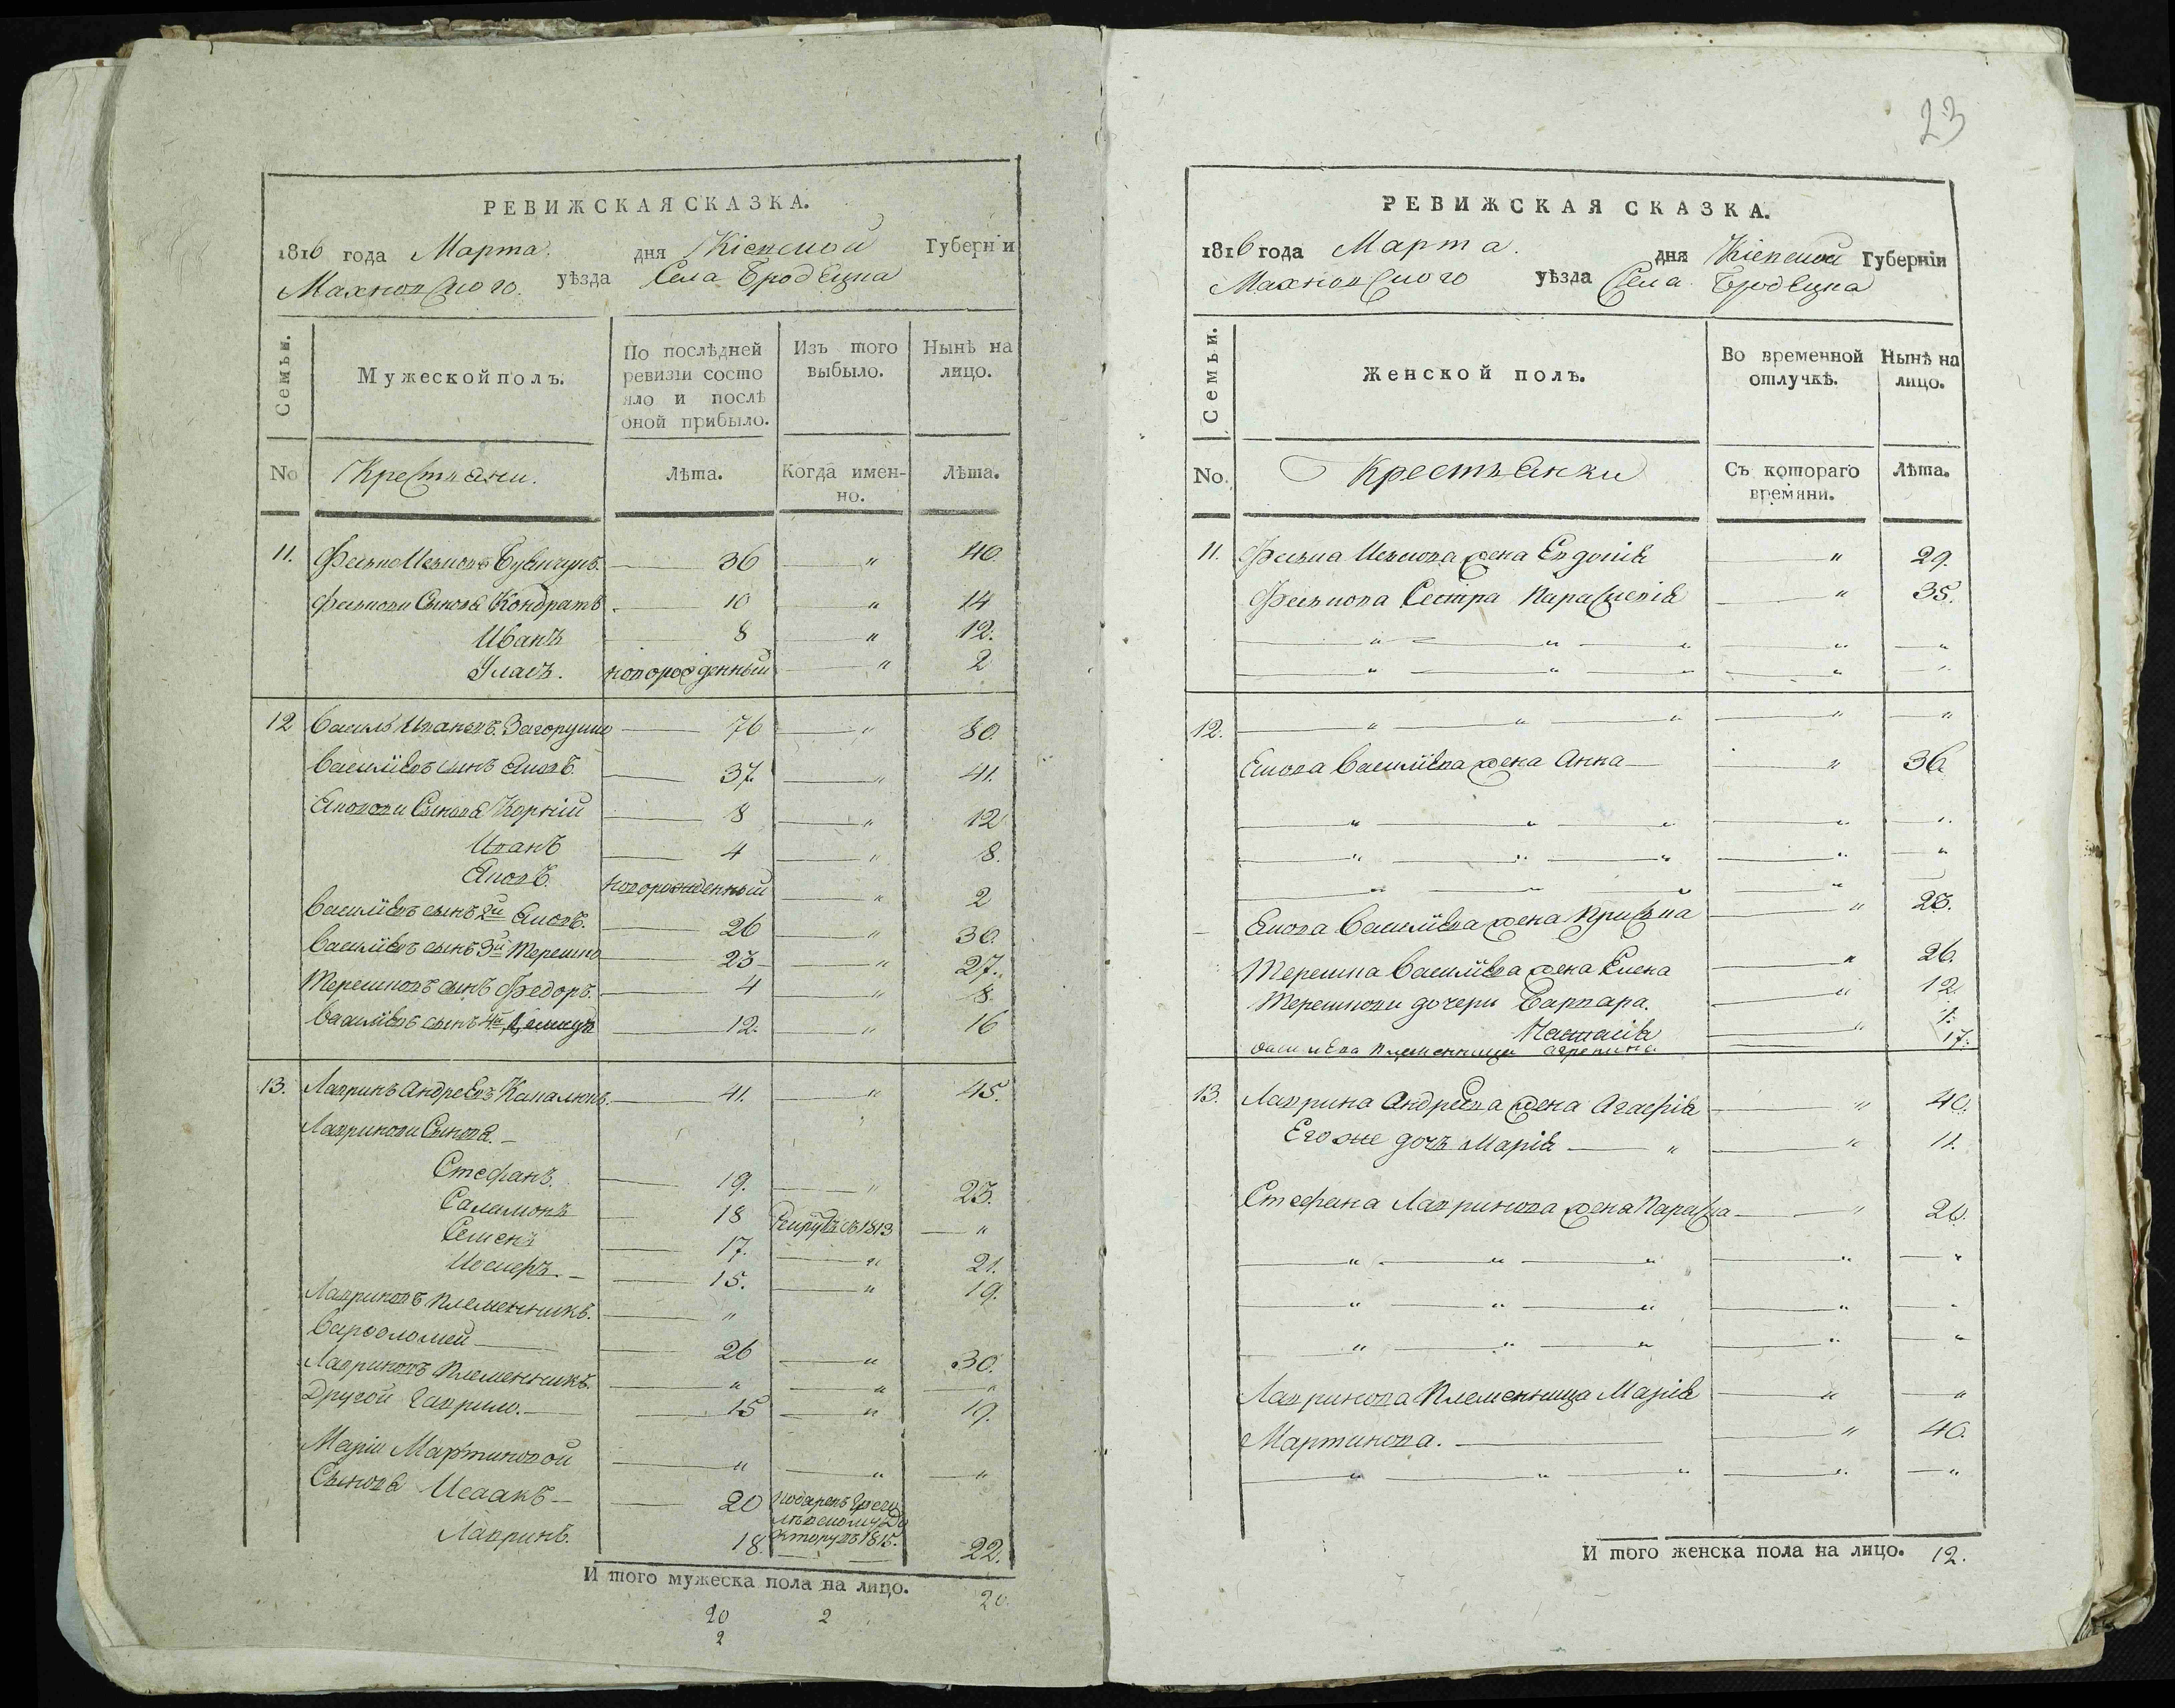 РЕВИЖСКАЯ СКАЗКА.
1816 года Марта дня Кіевской Губерніи
Махновского уѣзда Села Бродѣцка
Семьи.
Мужеской полъ.
По послѣдней ревизіи состо
яло и послѣ
оной прибыло.
Изъ того выбыло.
Нынѣ на лицо.
No Крестьяни. Лѣта. Когда имен-
но. Лѣта.
11. Фесько 36 " 40.
Фесковы Сынова Кондратъ 10 " 14
Иванъ 8 " 12.
Уласъ. новорожденный " 2
12 Василь Ивановъ Загоруйко 76 " 80.
Василіевъ сынъ Яковъ. 37. " 41.
Якововы Сынова Корній 8 " 12
Иванъ 4 " 8.
Яковъ. новорожденный " 2
Василіевъ сынъ 2й Яковъ. 26 " 30.
Василіевъ сынъ 3й Терешко 23 " 27.
Терешковъ сынъ Федоръ. 4 " 8.
Василіевъ сынъ 4й 12. " 16
13. Лавринъ Андреевъ 41. " 45.
Лавриновы Сынова.
Стефанъ. 19. " 23.
Саламонъ 18 въ 1813 "
Семенъ 17. " 21.
Иосифъ. 15. " 19.
Лавриновъ племенникъ. "
Варфоломей 26 " 30.
Лавриновъ племенникъ. " " "
Другой Гаврило. 15 " 19.
Маріи Мартиновой " " "
Сынова Исаакъ 20 подаренъ
1815.
Лавринъ. 18. 22.
И того мужеска пола на лицо. 20.
20 2
2
23
РЕВИЖСКАЯ СКАЗКА.
1816 года Марта. дня Кіевской Губерніи
Махновского уѣзда Села Бродѣцка
Семьи.
Женской полъ.
Во временной отлучкѣ.
Нынѣ на лицо.
No. Крестьянки Съ котораго
времяни. Лѣта.
11. Феська жена Евдокія " 29.
Феськова Сестра Параскевія " 35.
" " " " "
" " " " "
12. " " " " "
Якова Василіева жена Анна " 36.
" " " " "
" " " " "
"
Якова Василіева жена " 23.
Терешка Василіева жена Елена " 26.
Терешковы дочери Варвара. " 12.
Настасія " 1.
Василіева племенница Агрепина 17.
13. Лаврина Андреева жена Агафія " 40.
Его же дочь Марія " " 11.
Стефана Лавринова жена Параска " 20.
" " " " "
" " " " "
" " " " "
Лавринова племенница Марія " "
Мартинова. " 40.
" " " " "
И того женска пола на лицо. 12.